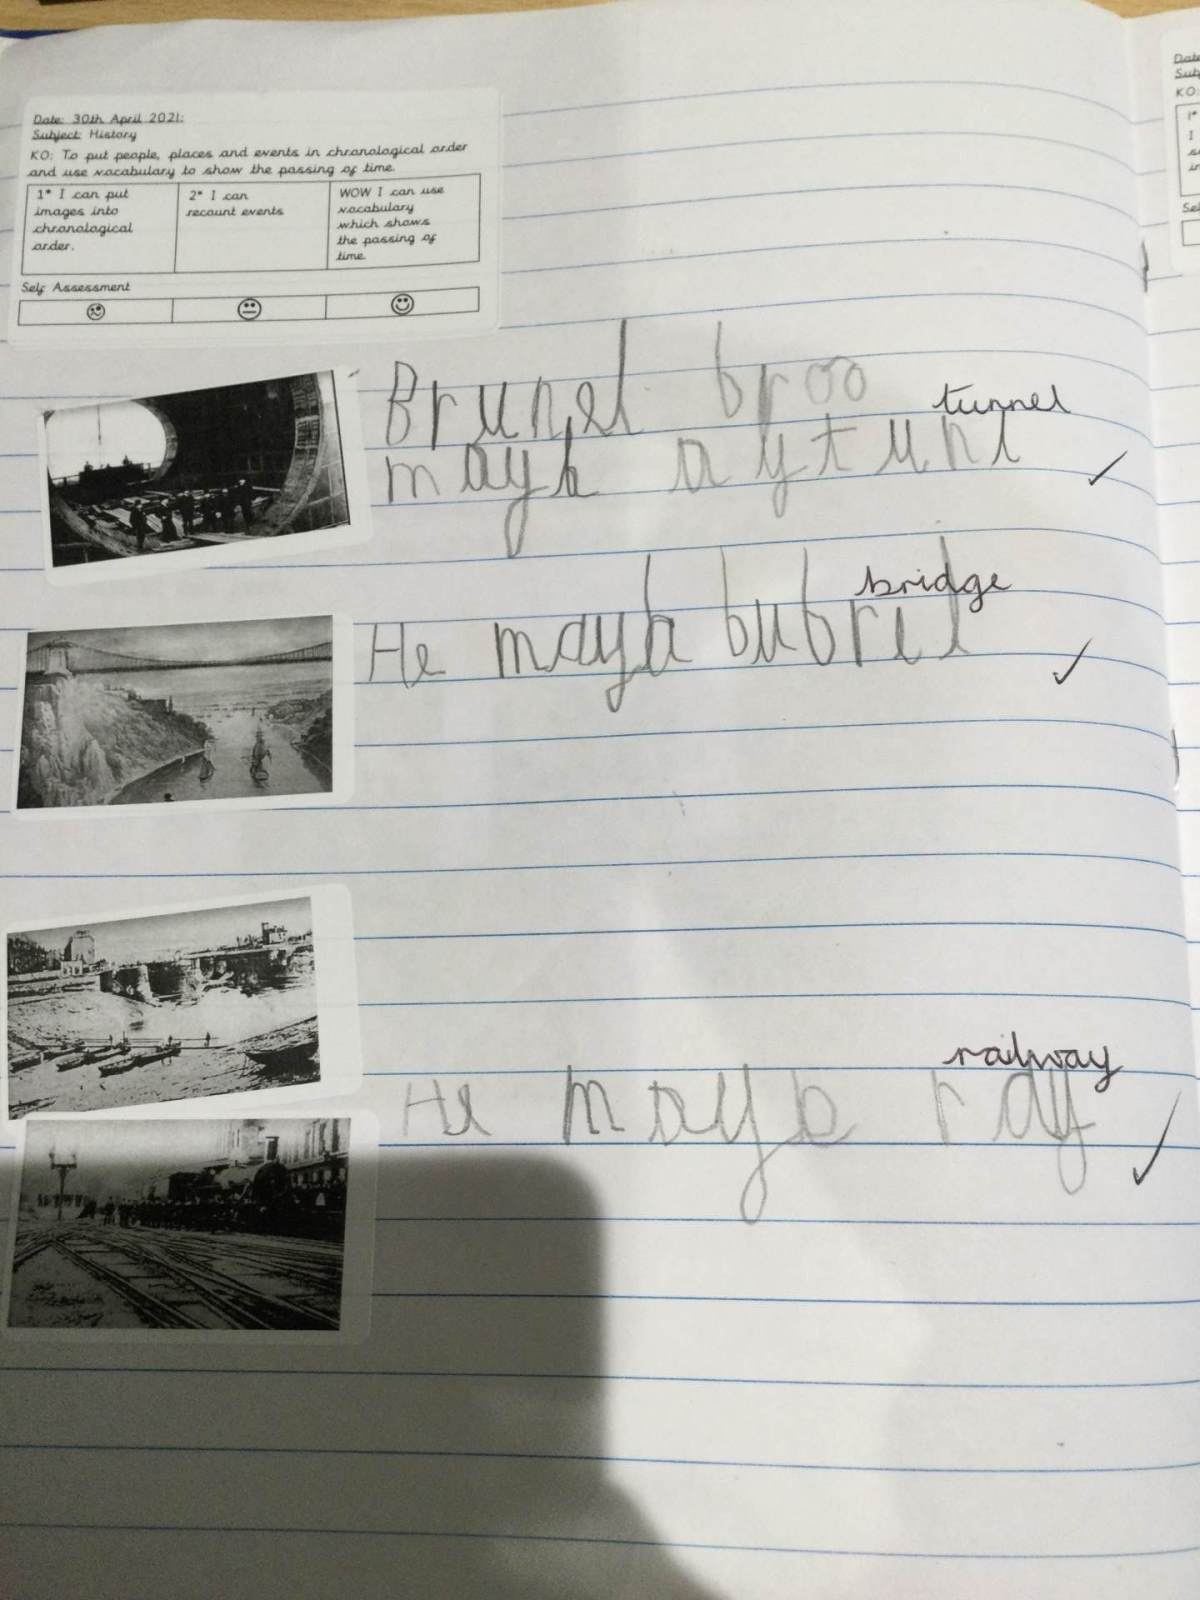 Date: 30th April 2021:
Subject: History
KO: To put people, places and events in chronological order
and use vocabulary to show the passing of time.
1* I can put
images into
chronological
order.
2* I can
recount events
WOW I can use
vocabulary
which shows
the passing of
time.
Self Assessment
Brunel broo
tunnel
mayb a y tunl
bridge
He mayb bubril
railway
He mayb ray
Date
Sub
KO:
1*
I
Sel